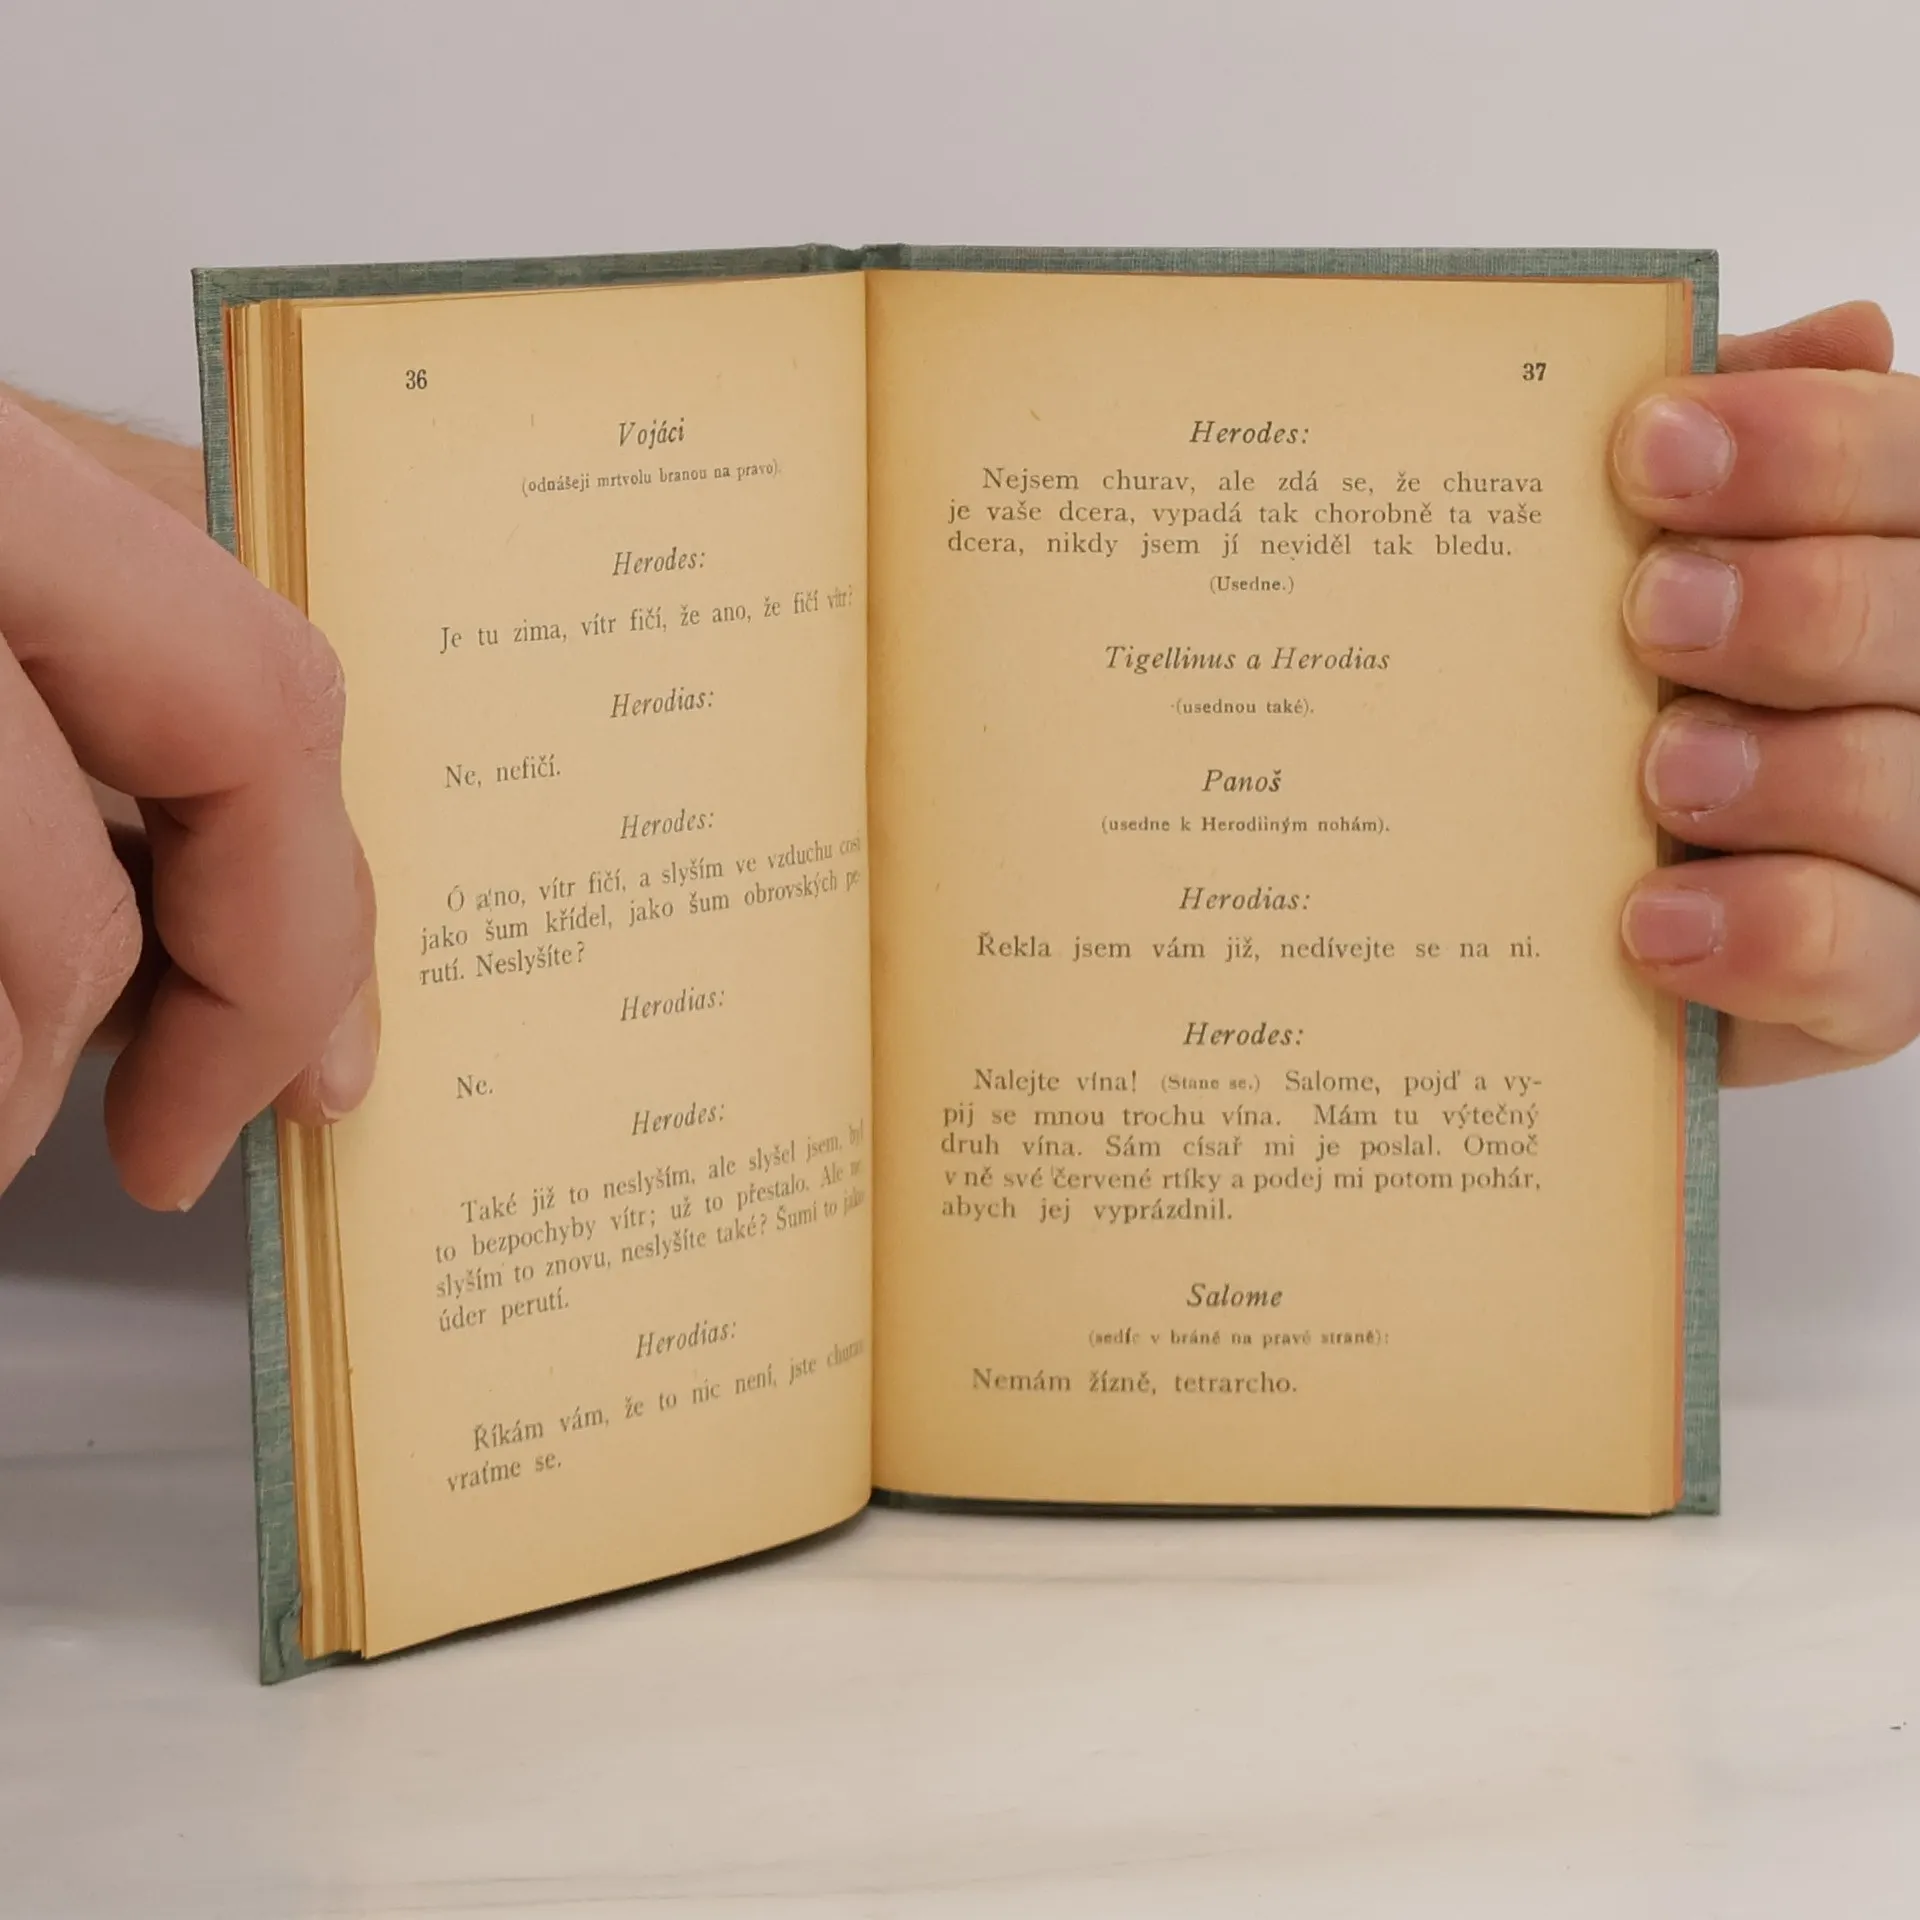 36
Vojáci
(odnášeji mrtvolu branou na pravo).
Herodes:
Je tu zima, vítr fičí, že ano, že fičí vítr?
Herodias:
Ne, nefičí.
Herodes:
Ó ano, vítr fičí, a slyším ve vzduchu cosi
jako šum křídel, jako šum obrovských pe-
rutí. Neslyšíte?
Herodias:
Ne.
Herodes:
Také již to neslyším, ale slyšel jsem, byl
to bezpochyby vítr; už to přestalo. Ale ne
slyším to znovu, neslyšíte také? Šumi to jako
úder perutí.
Herodias:
Říkám vám, že to nic není, jste churav
vraťme se.
37
Herodes:
Nejsem churav, ale zdá se, že churava
je vaše dcera, vypadá tak chorobně ta vaše
dcera, nikdy jsem jí neviděl tak bledu.
(Usedne.)
Tigellinus a Herodias
(usednou také).
Panoš
(usedne k Herodiiným nohám).
Herodias:
Řekla jsem vám již, nedívejte se na ni.
Herodes:
Nalejte vína! (Stane se.) Salome, pojď a vy-
pij se mnou trochu vína. Mám tu výtečný
druh vína. Sám císař mi je poslal. Omoč
v ně své červené rtíky a podej mi potom pohár,
abych jej vyprázdnil.
Salome
(sedíc v bráně na pravé straně):
Nemám žízně, tetrarcho.